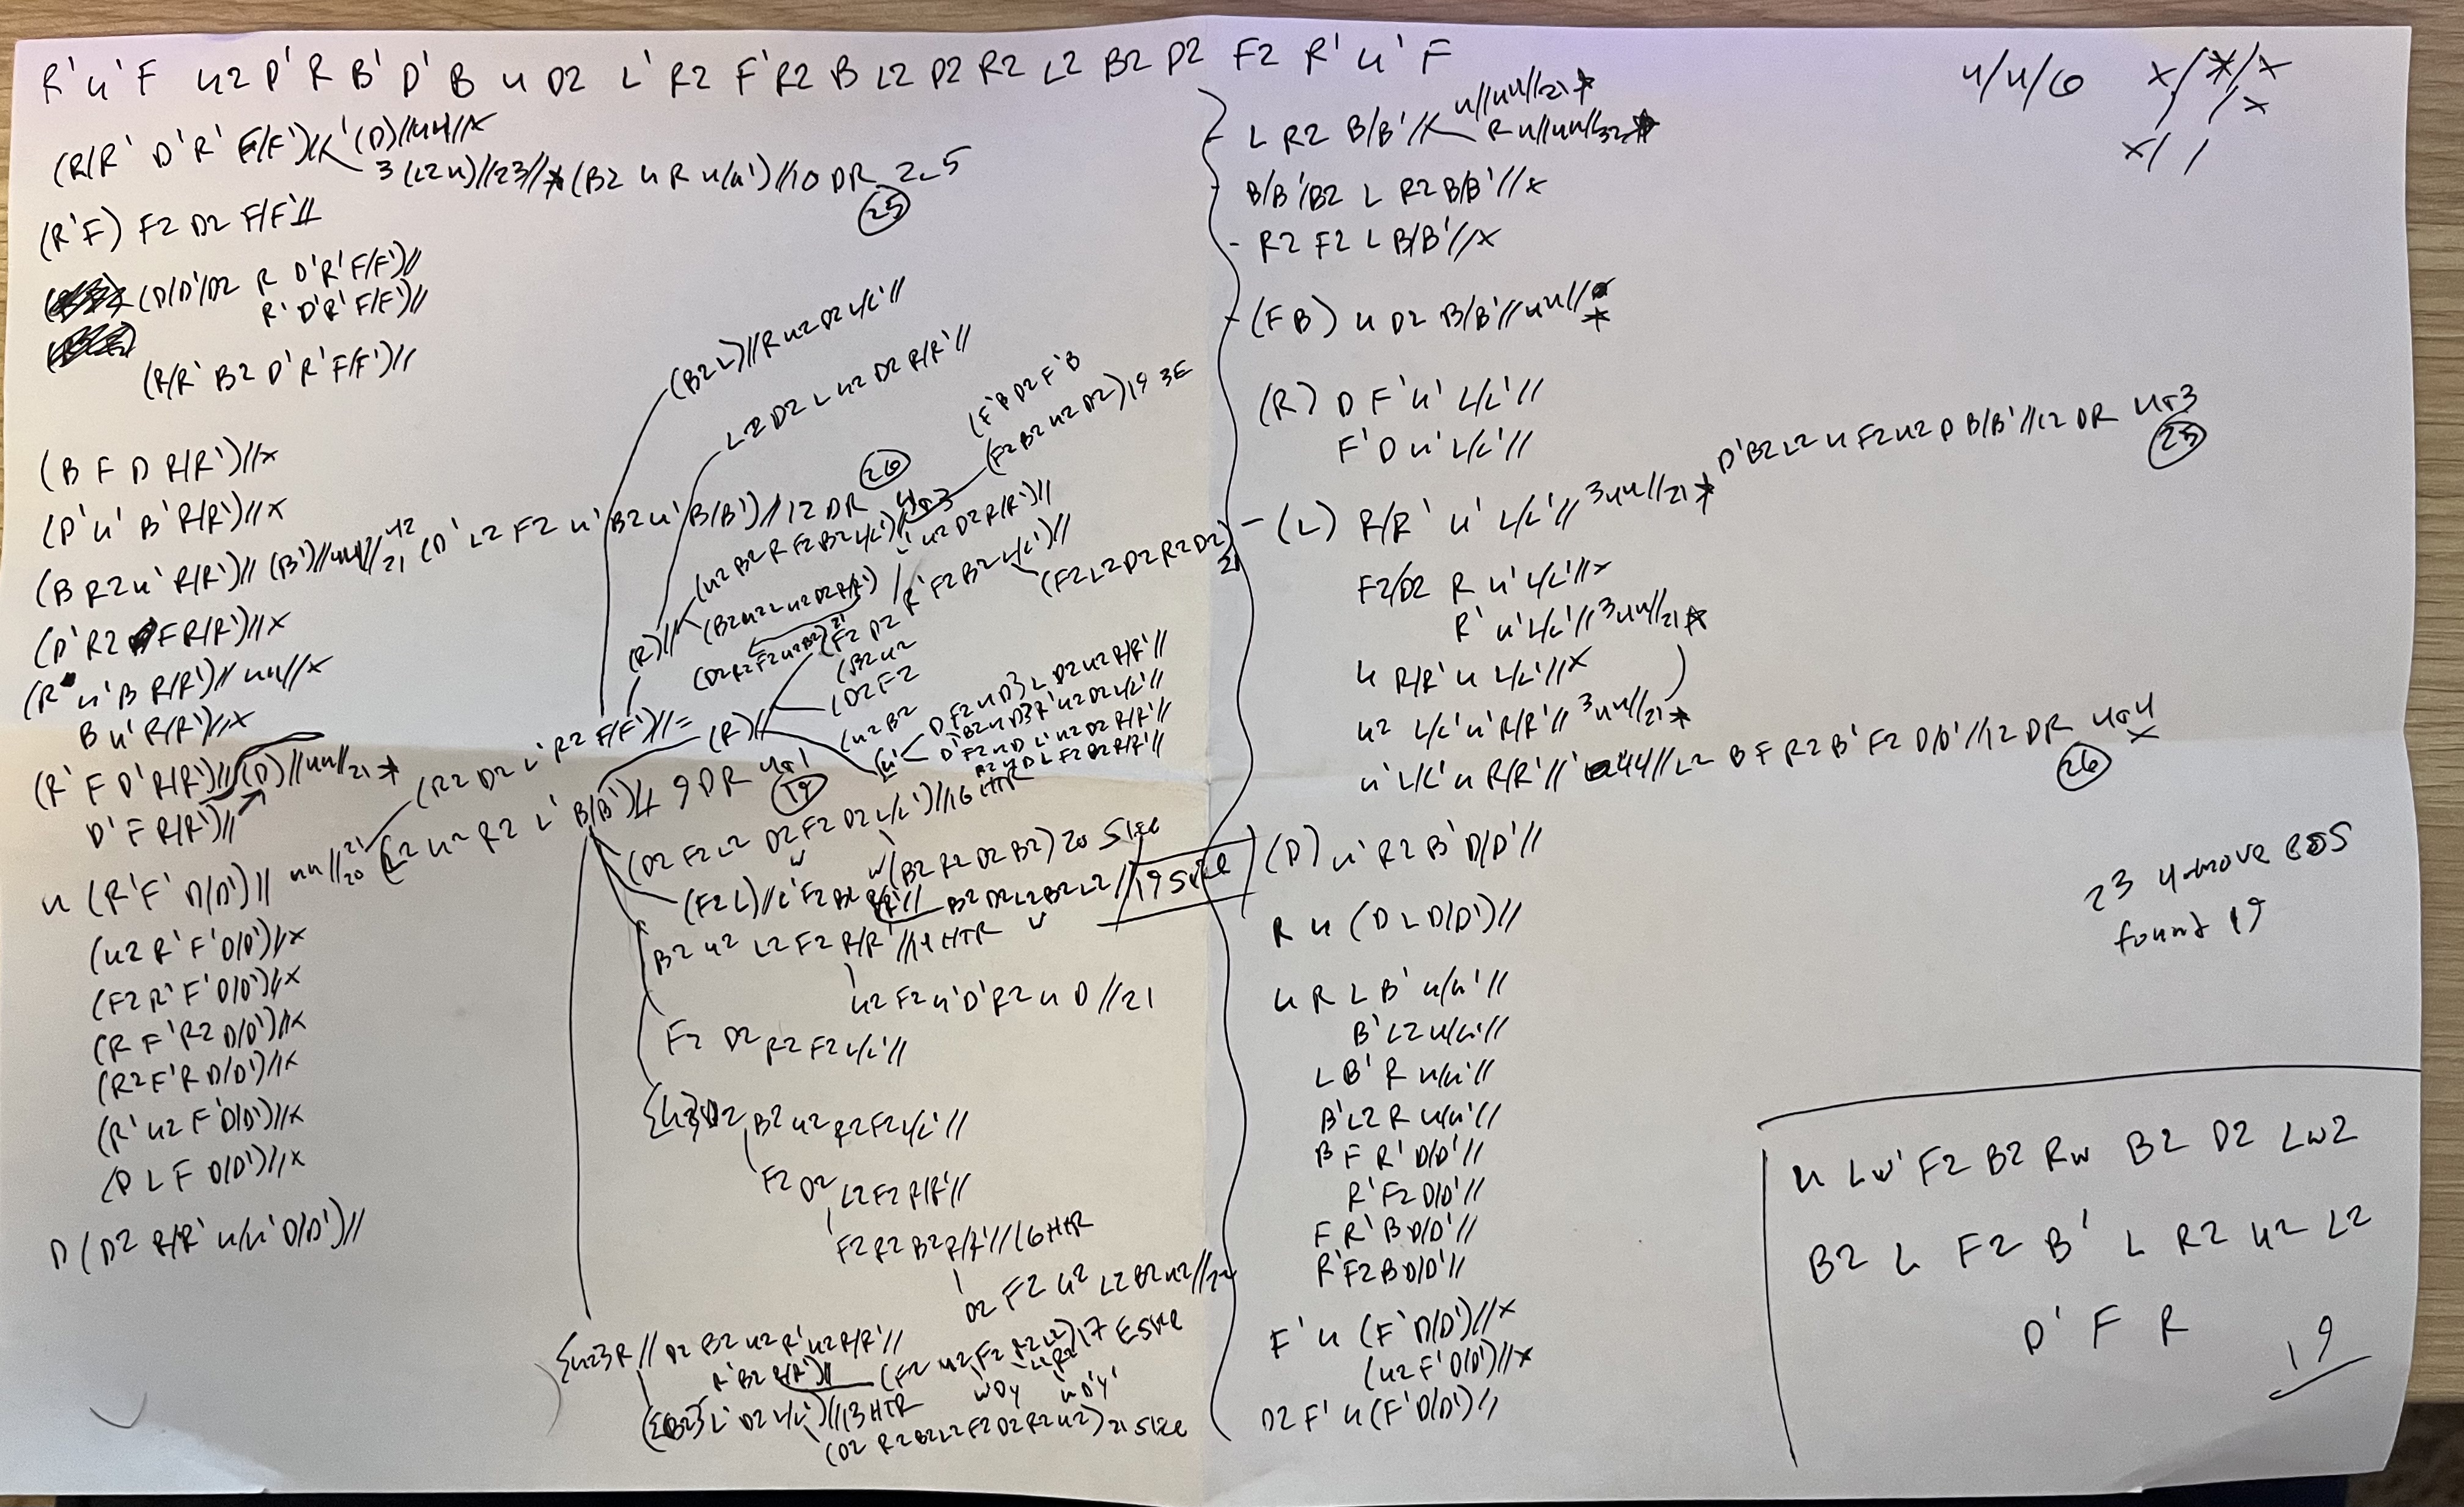 R' u' F u2 D' R B' D' B u D2 L' R2 F' R2 B L2 D2 R2 L2 B2 D2 F2 R' u' F
(R/R' D' R' F/F')// (D)//44//x
3 (L2 u)//23// (B2 u R u/u')//10 DR 2-5
25
(R'F) F2 D2 F/F'//
(D/D'/D2 R D'R'F/F')//
R'D'R'F/F')//
(R/R' B2 D'R'F/F')//
(B F D R/R')//x
(D' u' B' R/R')//x
(B R2 u' R/R')// (B')//44// 21 (D' L2 F2 u' B2 u' B/B')//12 DR 4a3
26
(D' R2 F R/R')//x
(R u' B R/R')// 44//x
B u' R/R')//x
(R' F D' R/R')// (D)//44//21
D' F R/R')//
u (R'F' D/D')// 44//20 (L2 u2 R2 L' B/B')// 9 DR 4a1
19
21 (R2 D2 L' R2 F/F')// =
(u2 R' F' D/D')//x
(F2 R' F' D/D')//x
(R F' R2 D/D')//x
(R2 F' R D/D')//x
(R' u2 F' D/D')//x
(D L F D/D')//x
D (D2 R/R' u/u' D/D')//
(B2 L)//R u2 D2 L/L'//
L2 D2 L u2 D2 R/R'//
(F' B D2 F' B
(F2 B2 u2 D2) 19 3E
(R)// (u2 B2 R F2 B2 L/L')//
(B2 u2 L u2 D2 R/R')
L' u2 D2 R/R')//
(D2 R2 F2 u2 B2) 21
(F2 D2 R' F2 B2 L/L')//
(F2 L2 D2 R2 D2) 21
(B2 u2
(D2 F2
(u2 B2
(R)//
D F2 u D} L D2 u2 R/R'//
D' B2 u D} R' u2 D2 L/L'//
D' F2 u D L' u2 D2 R/R'//
R2 u D L F2 B2 R/R'//
(D2 F2 L2 D2 F2 D2 L/L')//16 HTR
w (B2 R2 D2 B2) 20 Slice
(F2 L)//L' F2 B2 R/R'// B2 D2 L2 B2 L2 // 19 Slice
B2 u2 L2 F2 R/R'//14 HTR
u2 F2 u' D' R2 u D //21
F2 D2 R2 F2 L/L'//
{u2}D2 B2 u2 R2 F2 L/L'//
F2 D2 L2 F2 R/R'//
F2 R2 B2 R/R'//16 HTR
D2 F2 u2 L2 B2 u2//22
{u2}R// D2 B2 u2 R' u2 R/R'//
R' B2 R/R')// (F2 u2 F2 R2 L2) 17 E Slice
({B2} L' D2 L/L')//13 HTR
(D2 R2 B2 L2 F2 D2 R2 u2) 21 Slice
- L R2 B/B'// u//44//21
R u//44//22
- B/B'/B2 L R2 B/B'//x
- R2 F2 L B/B'//x
- (F B) u D2 B/B'//44//
(R) D F' u' L/L'//
F' D u' L/L'//
- (L) R/R' u' L/L'// 3 44//21 D' B2 L2 u F2 u2 D B/B'//12 DR 4a3
25
F2/D2 R u' L/L'//x
R' u' L/L'// 3 44//21
u R/R' u L/L'//x
u2 L/L' u' R/R'// 3 44//21
u' L/L' u R/R'// 44//L2 B F R2 B' F2 D/D'//12 DR 4a4
26
x
(D) u' R2 B' D/D'//
R u (D L D/D')//
u R L B' u/u'//
B' L2 u/u'//
L B' R u/u'//
B' L2 R u/u'//
B F R' D/D'//
R' F2 D/D'//
F R' B D/D'//
R' F2 B D/D'//
F' u (F' D/D')//x
(u2 F' D/D')//x
D2 F' u (F' D/D')//
4/4/6
x/*/x
/x
x/ /
23 4-move EOS
found 19
u Lw' F2 B2 Rw B2 D2 Lw2
B2 L F2 B' L R2 u2 L2
D' F R
19